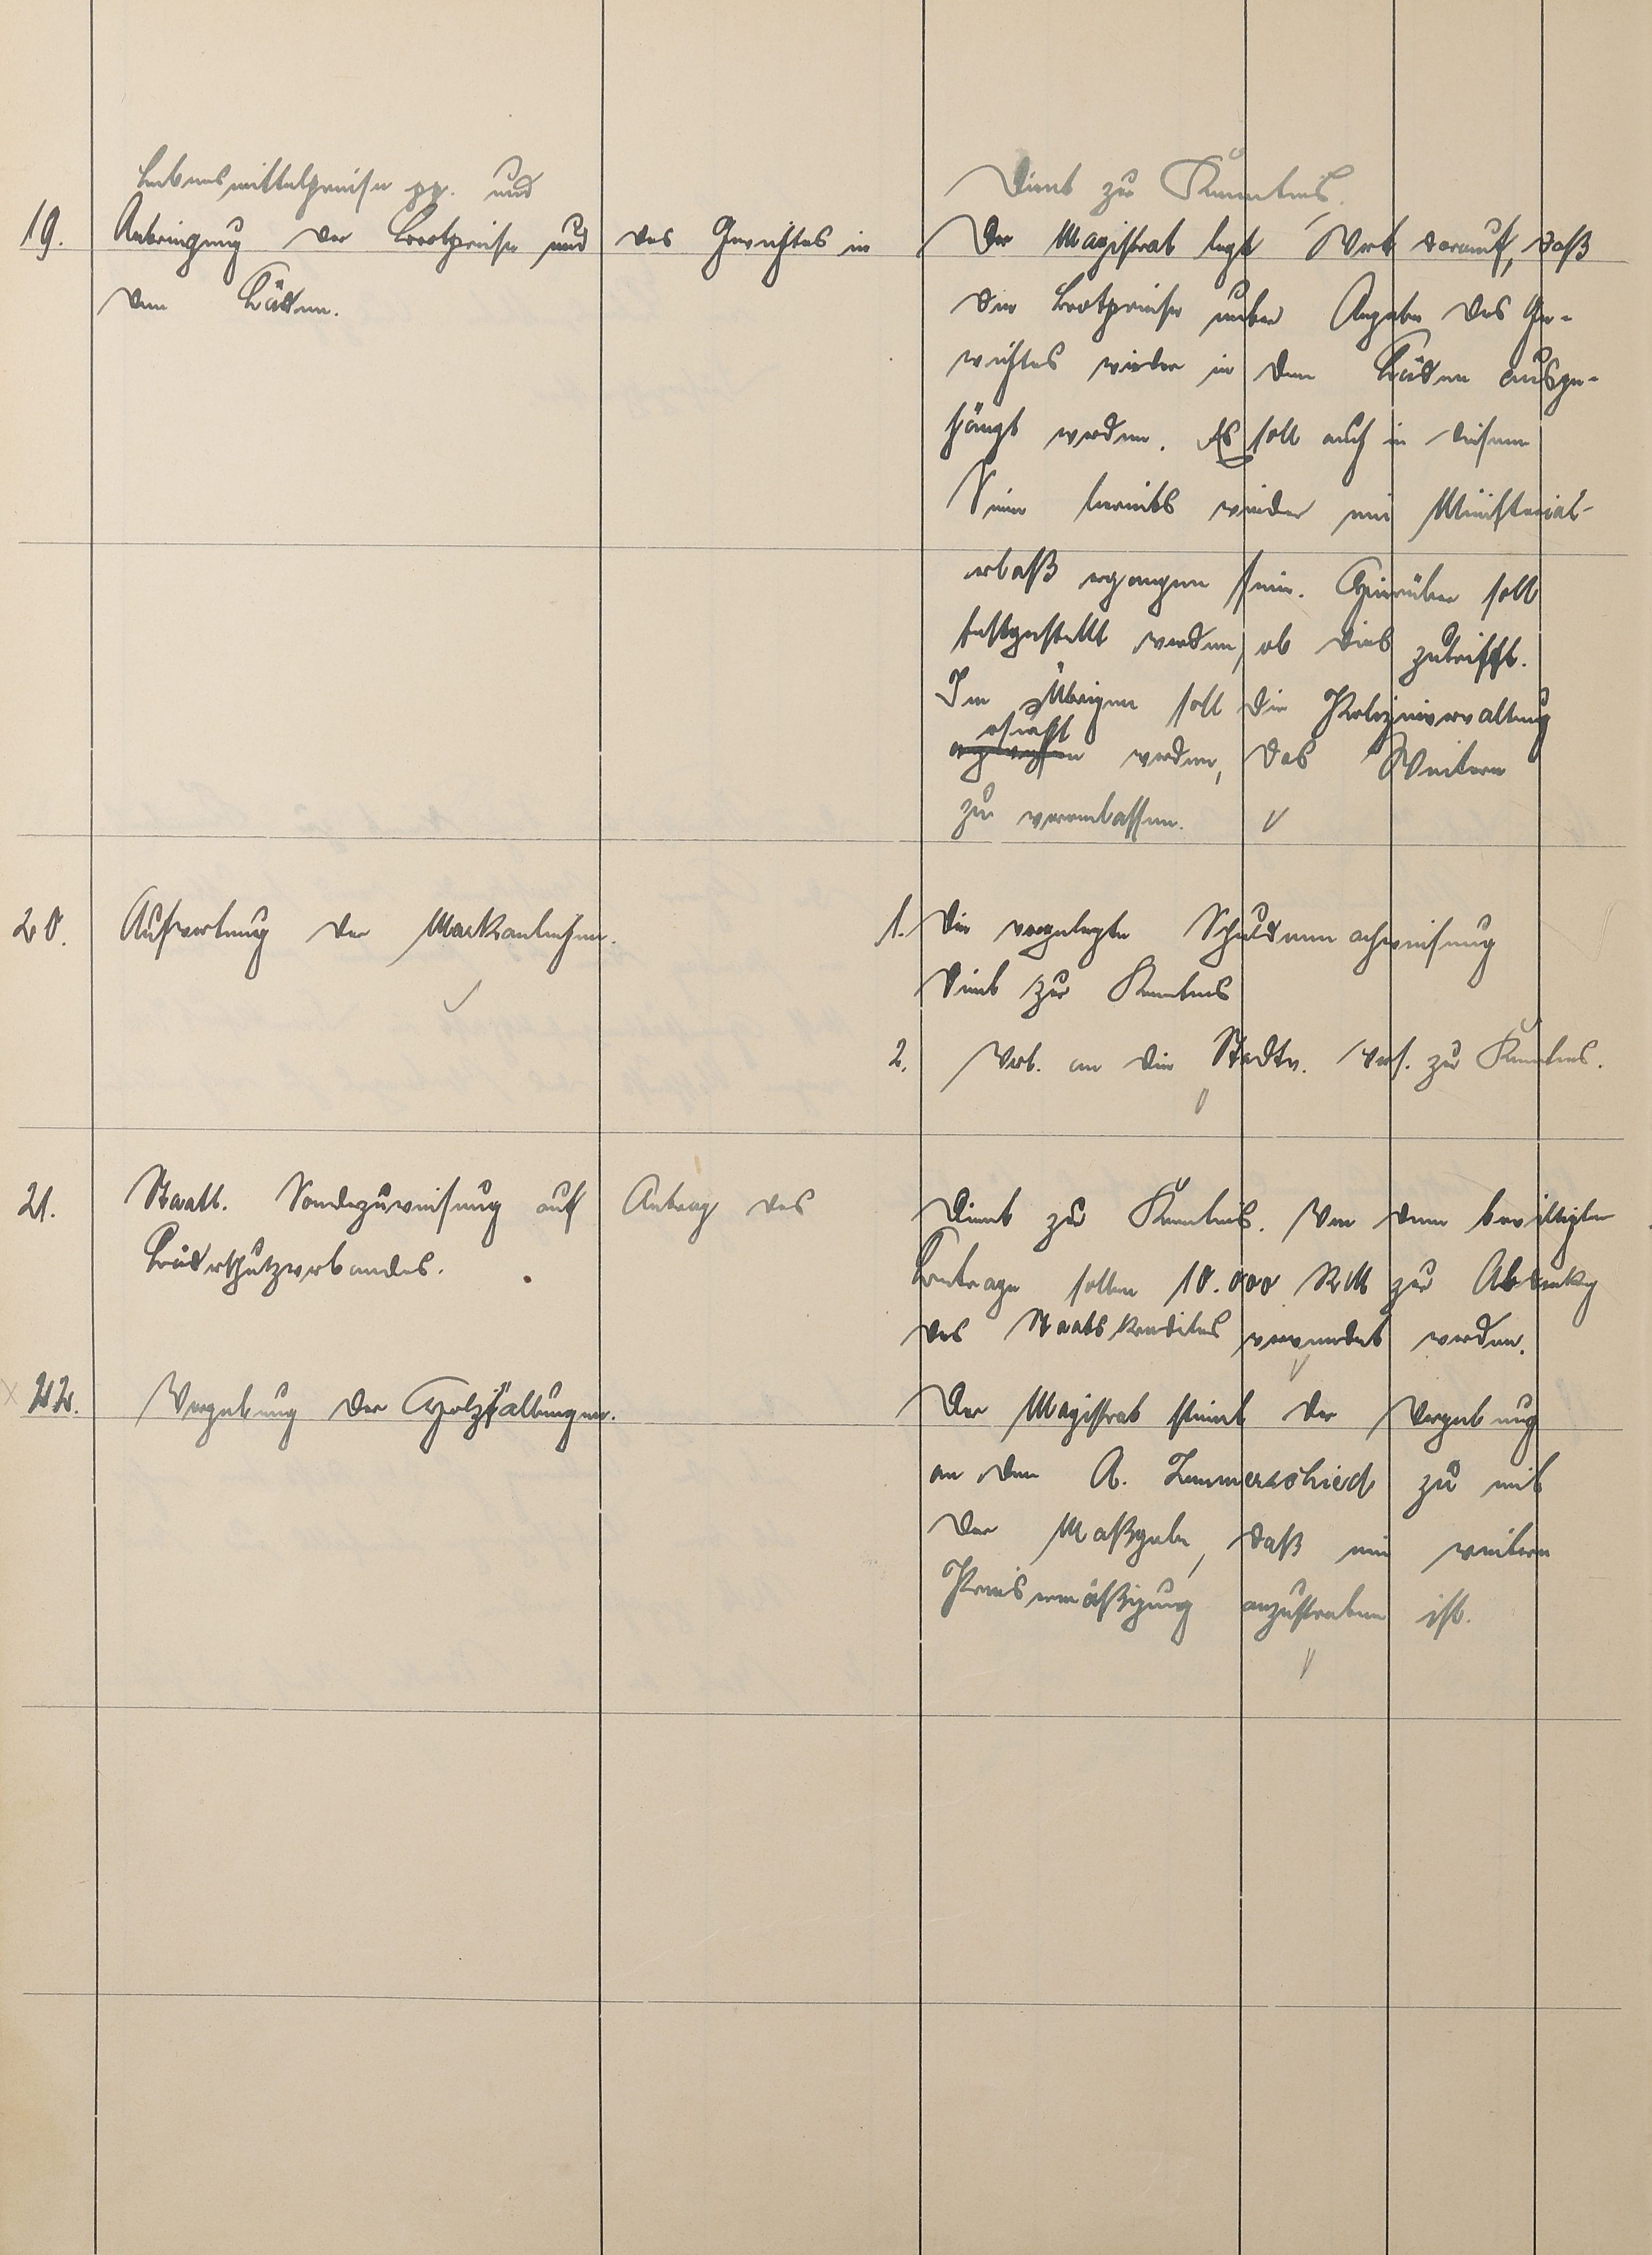 Lebensmittelpreise pp. und
Dient zur Kenntnis.
19. Anbringung der Brotpreise und des Gewichtes in
den Läden.
Der Magistrat legt Wert darauf, daß
die Brotpreise unter Angabe des Ge-
wichtes wieder in den Läden ausge-
hängt werden. Es soll auch in diesem
Sinne bereits wieder ein Ministerial-
erlaß ergangen sein. Hierüber soll
festgestellt werden, ob dies zutrifft.
Im Übrigen soll die Polizeiverwaltung
ersucht
werden, das Weitere
zu veranlassen.
20. Aufwertung der Markanleihen.
1. Die vorgelegte Schuldennachweisung
dient zur Kenntnis
2. Vorl. an die Stadtv. Vers. zur Kenntnis.
21. Staatl. Sonderzuweisung auf Antrag des
Bäderschutzverbandes.
Dient zur Kenntnis. Von dem bewilligten
Betrage sollen 10.000 RM zur Abdeckg
des Staatskredites verwendet werden.
22. Vergebung der Holzfällungen.
Der Magistrat stimmt der Vergebung
an den A. Zimmerschied zu mit
der Maßgabe, daß eine weitere
Preisermäßigung anzustreben ist.